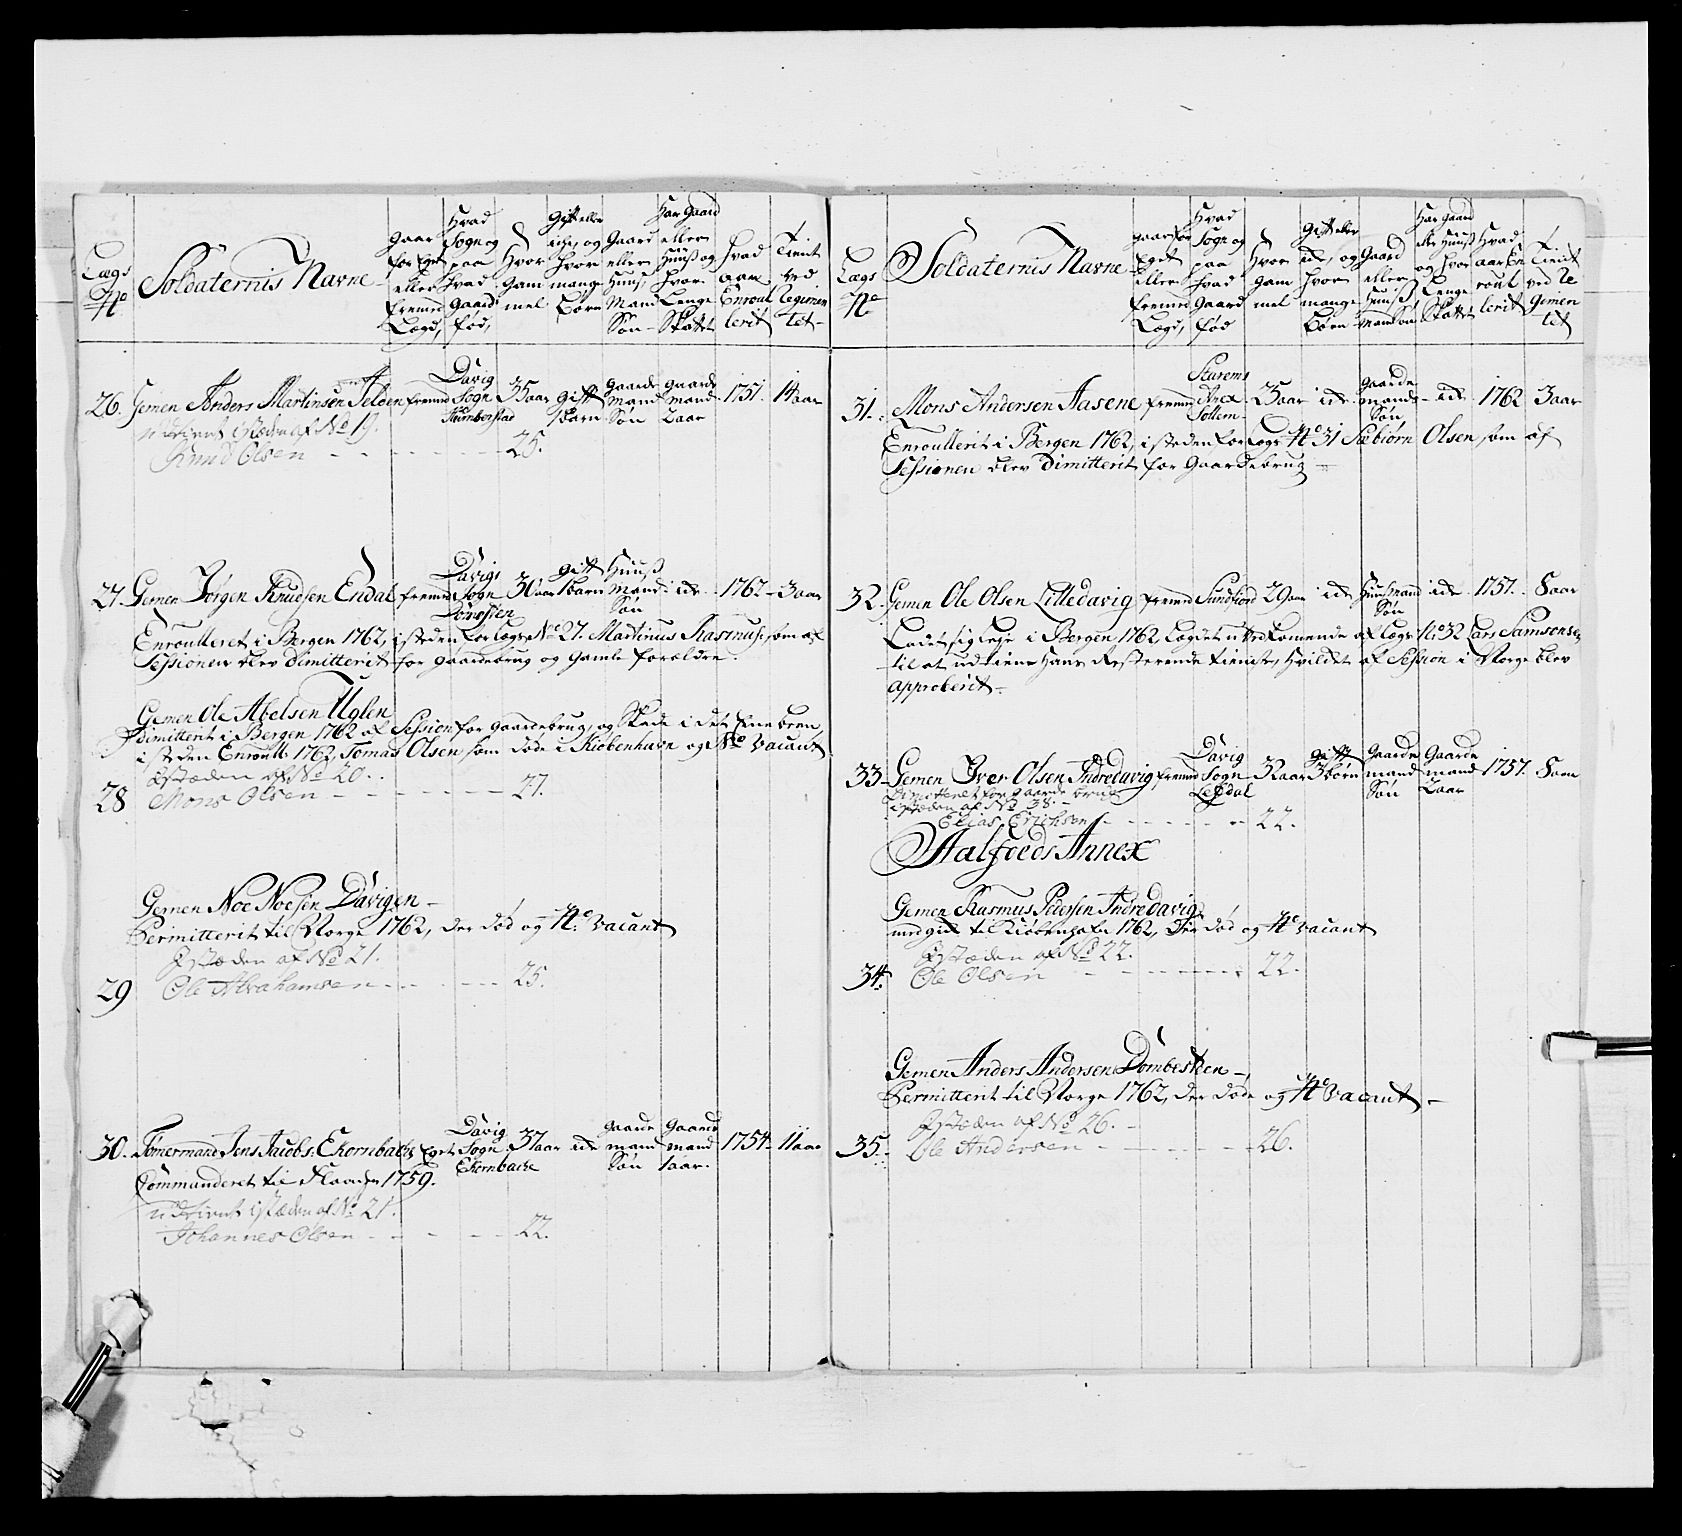 Lægs No
Soldaternis Navne
Gaar for Eget eller fremed Lægd,
Hvad Sogn og paa hvad Gaard fød,
Hvor Gam mel
Gift eller ich, og hvor mange Børn
Gaard eller Huus Mand Søn
Har Gaard eller Huuß og hvor Lenge Skattet
hvad aar Enroul lerit
Tient ved Regimen tet
26. Gemen Anders Martinsen fremed Davig Sogn 35 aar gift 1 barn gaarde mand Søn gaarde mand 2 aar 1751. 14 aar
udtient istæden af No 19.
Knud Olsen - - - - - 25.
27. Gemen Jørgen Knudsen Endal fremed Davigs Sogn 30 aar gift 1 barn Huuß mand Søn ide 1762 3 aar
Enroulleret i Bergen 1762, isteden for Lægs No 27. Martinus Rasmus: som af
Sessionen blev dimitterit for gaardebrug og gamle forældre.
Gemen Ole Abelsen Uglen
dimitterit i Bergen 1762 af Session for gaardebrug, og Skade i det Eene been,
isteden Enroull: 1762, Tomas Olsen som døde i Kiøbenhavn og No vacant
Istæden af No 20.
28 Mons Olsen - - - - - 27.
Gemen Noe Noesen Davigen -
Permitterit til Norge 1762, der død og No vacant
Istæden af No 21.
29 Ole Abrahamsen - - - - - 25.
30. Tømermand Jens Jacobs. Ekornbache Eget Davig Sogn Ekornbache 37 aar ide gaarde mand Søn Gaarde mand 1 aar. 1754 11 aar
Commanderet til 1759.
udtient istæden af No 21.
Johannes Olsen - - - - - 22.
Lægs No
Soldaternis Navne
gaar for Eget eller fremed Lægd,
Hvad Sogn og paa hvad Gaard fød
Hvor Gam mel
Gift eller ide, og hvor mange Børn
Gaard eller Huuß mand Søn
Har Gaard eller Huuß og hvor Lenge Skattet
Hvad aar En roul lerit
Tient ved Re Gimen tet
31. Mons Andersen Aasene fremed Anex 25 aar ide gaarde mands Søn ide 1762 3 aar
Enroullerit i Bergen 1762, isteden for Lægs No 31 Sæbiørn Olsen som af
Sessionen blev dimitterit for Gaardebrug
32. Gemen Ole Olsen Lilledavig fremed Sundfiord 29 aar ide Huusmand Søn ide 1757. 8 aar
Ladet sig Leje i Bergen 1762 af Lægs No 32 Lars Samsonsen
til at udtiene Hans Resterende tieniste, Hvildet af Session i Norge blev
approberit
33. Gemen Iver Olsen Indredavig fremed Davig Sogn Lefdal 32 aar gift 3 børn Gaarde mand Søn Gaarde mand 2 aar 1757. 8 aar
Dimitteret for Gaarde brug
istæden af No 38.
Elias Erichsen - - - - - 22.
Aalfoeds Annex
Gemen Rasmus Pedersen Indredavig
til Kiøbenhafn 1762, Der død og No vacant
Istæden af No 22.
34. Ole Olsen - - - - - 22.
Gemen Anders Andersen Dombesteen
Permitterit til Norge 1762, der døde og No vacant
Istæden af No 26.
35. Ole Andersen - - - - - 26.